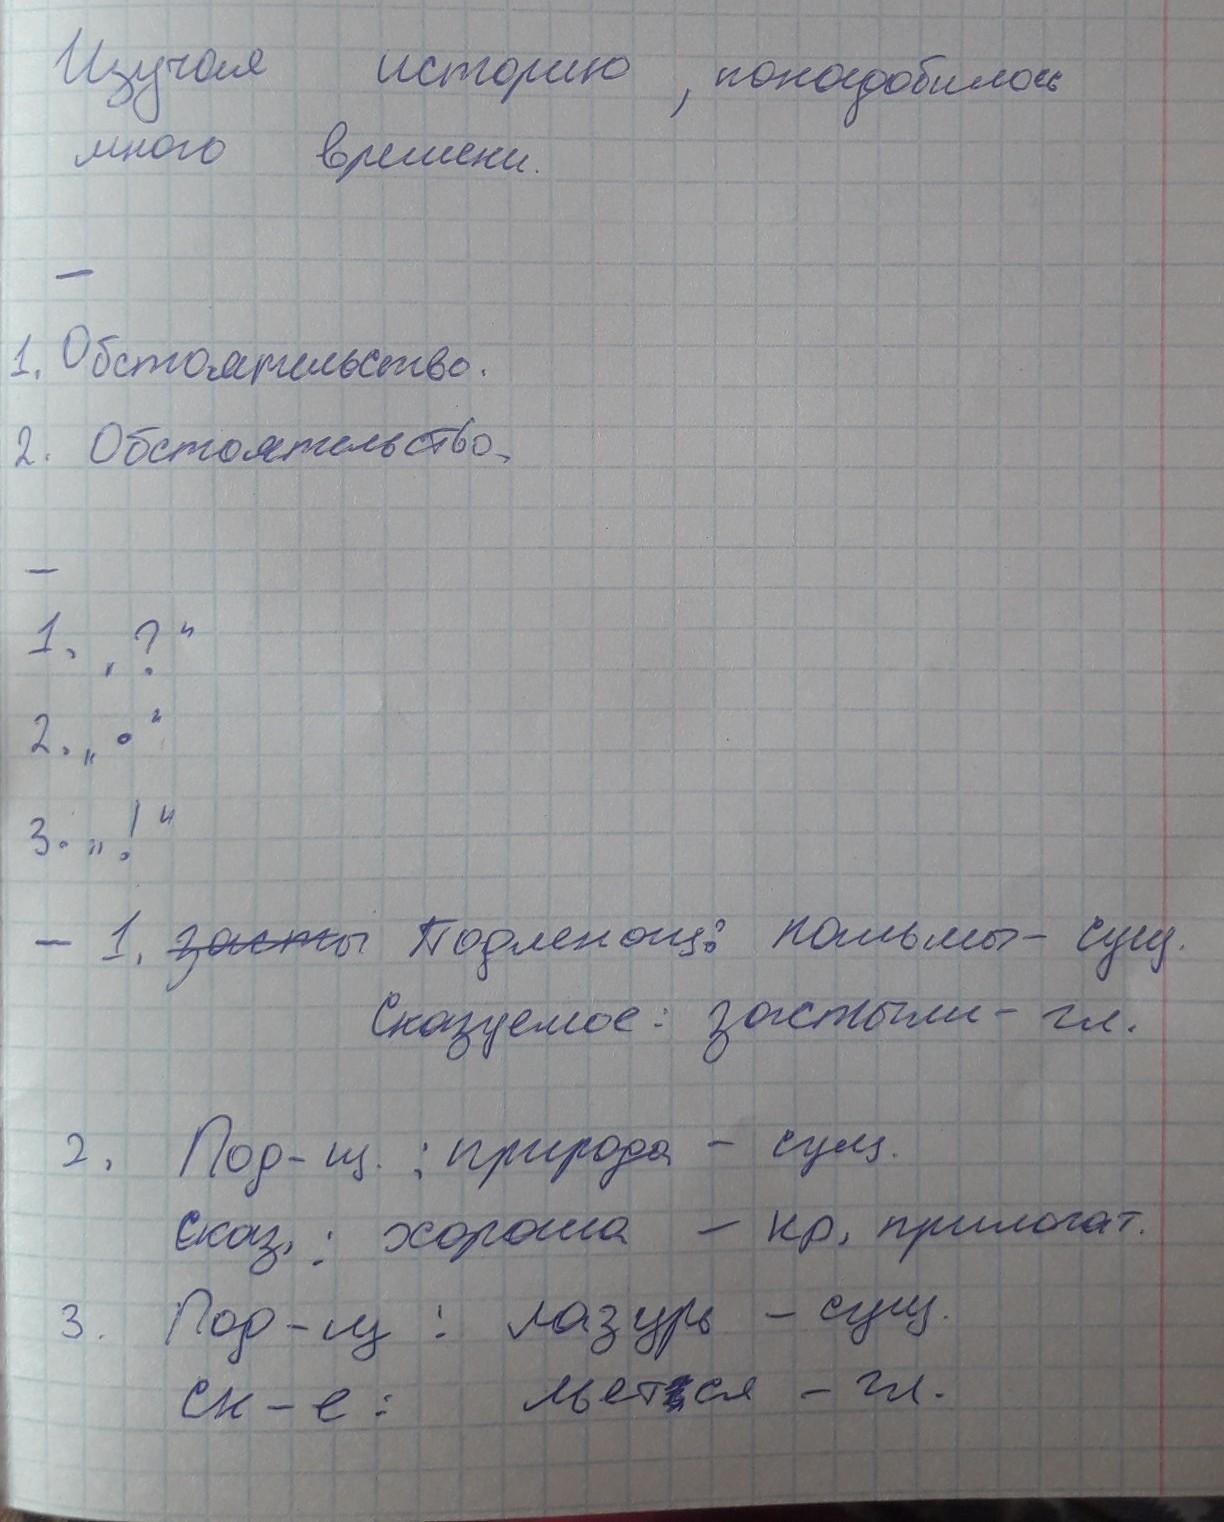 Изучая историю, понадобилось
много времени.
—
1. Обстоятельство.
2. Обстоятельство.
—
1. „?“
2. „.“
3. „!“
— 1. засты Подлежащ: пальмы - сущ.
Сказуемое: застыли - гл.
2. Под-щ.: природа - сущ.
Сказ.: хороша - кр. прилагат.
3. Под-щ: лазурь - сущ.
Ск-е: льется - гл.